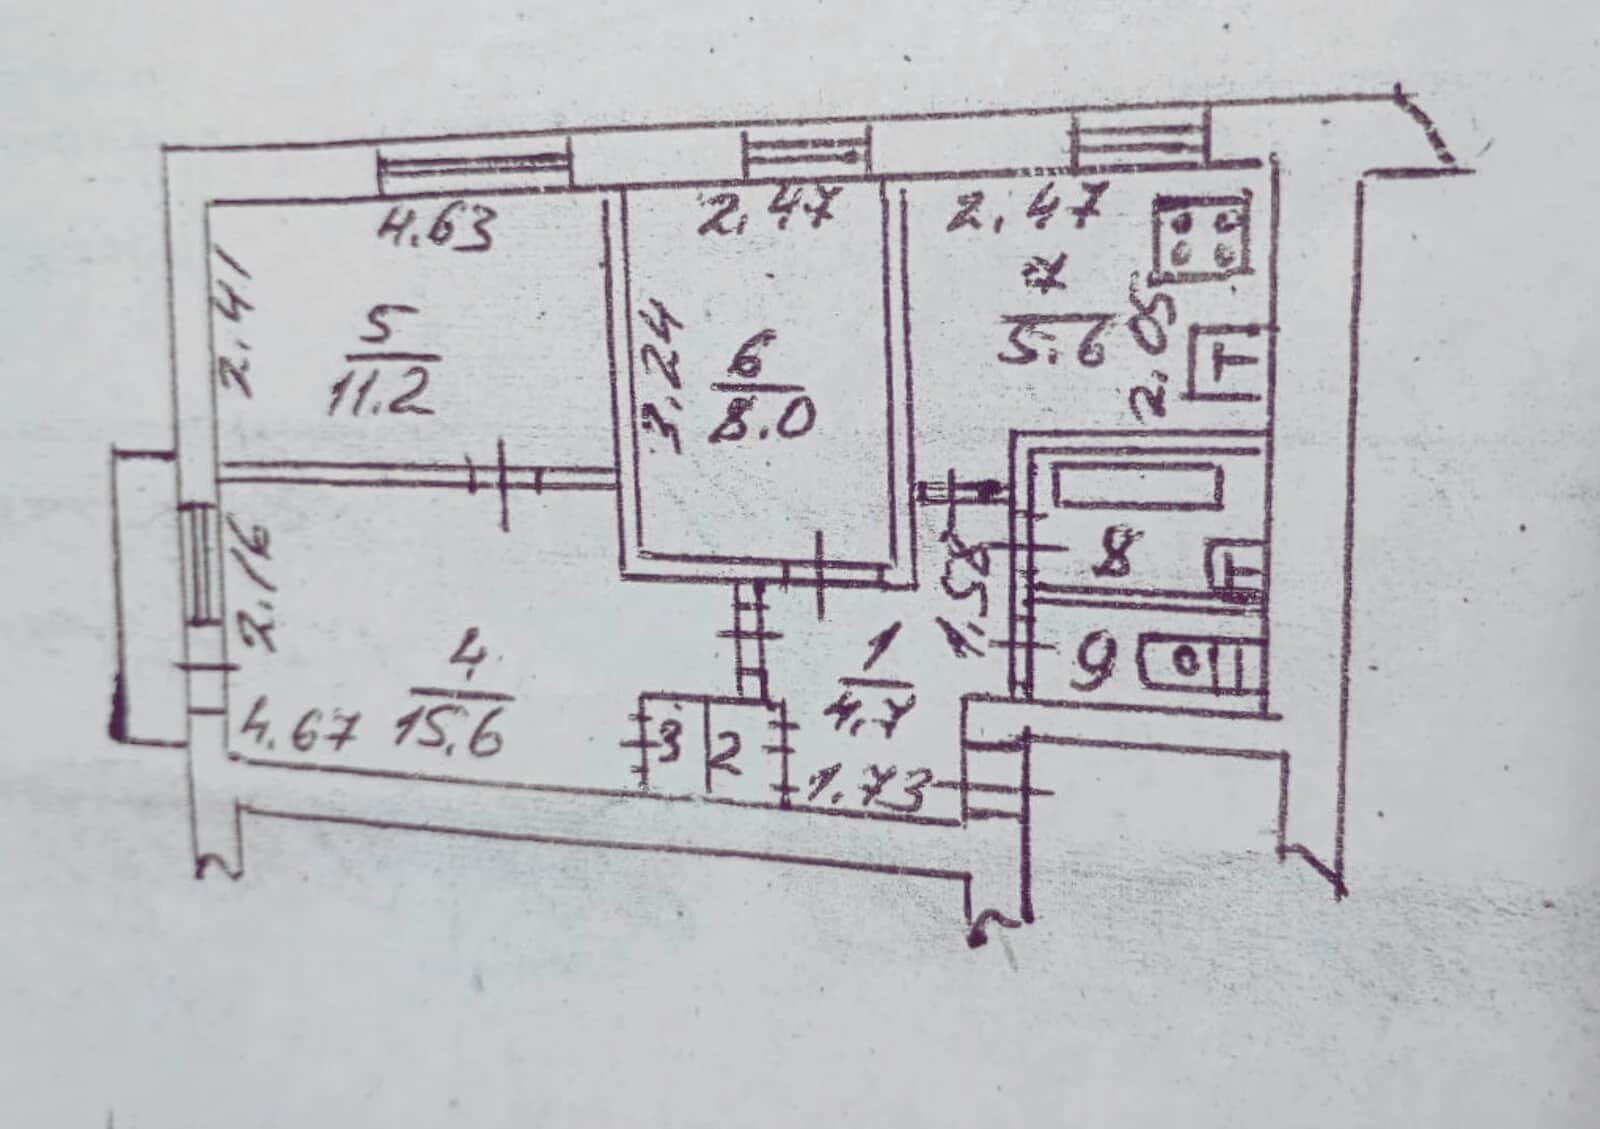 4.63
2.41
5
11.2
2.47
3.24
6
8.0
2.47
7
5.6
2.05
2.16
4
15.6
4.67
3
2
1
4.7
1.58
1.73
8
9